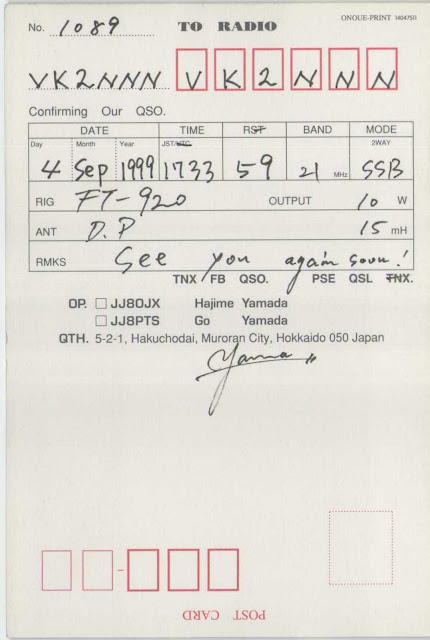 ONOUE-PRINT 14047511
No. 1089 TO RADIO
VK2NNN V K 2 N N N
Confirming Our QSO.
DATE TIME RST BAND MODE
Day Month Year JST/UTC 2WAY
4 Sep 1999 1733 59 21 MHz SSB
RIG FT-920 OUTPUT 10 W
ANT D.P 15 mH
RMKS See you again soon!
TNX FB QSO. PSE QSL TNX.
OP. JJ8OJX Hajime Yamada
JJ8PTS Go Yamada
QTH. 5-2-1, Hakuchodai, Muroran City, Hokkaido 050 Japan
Yama
POST CARD